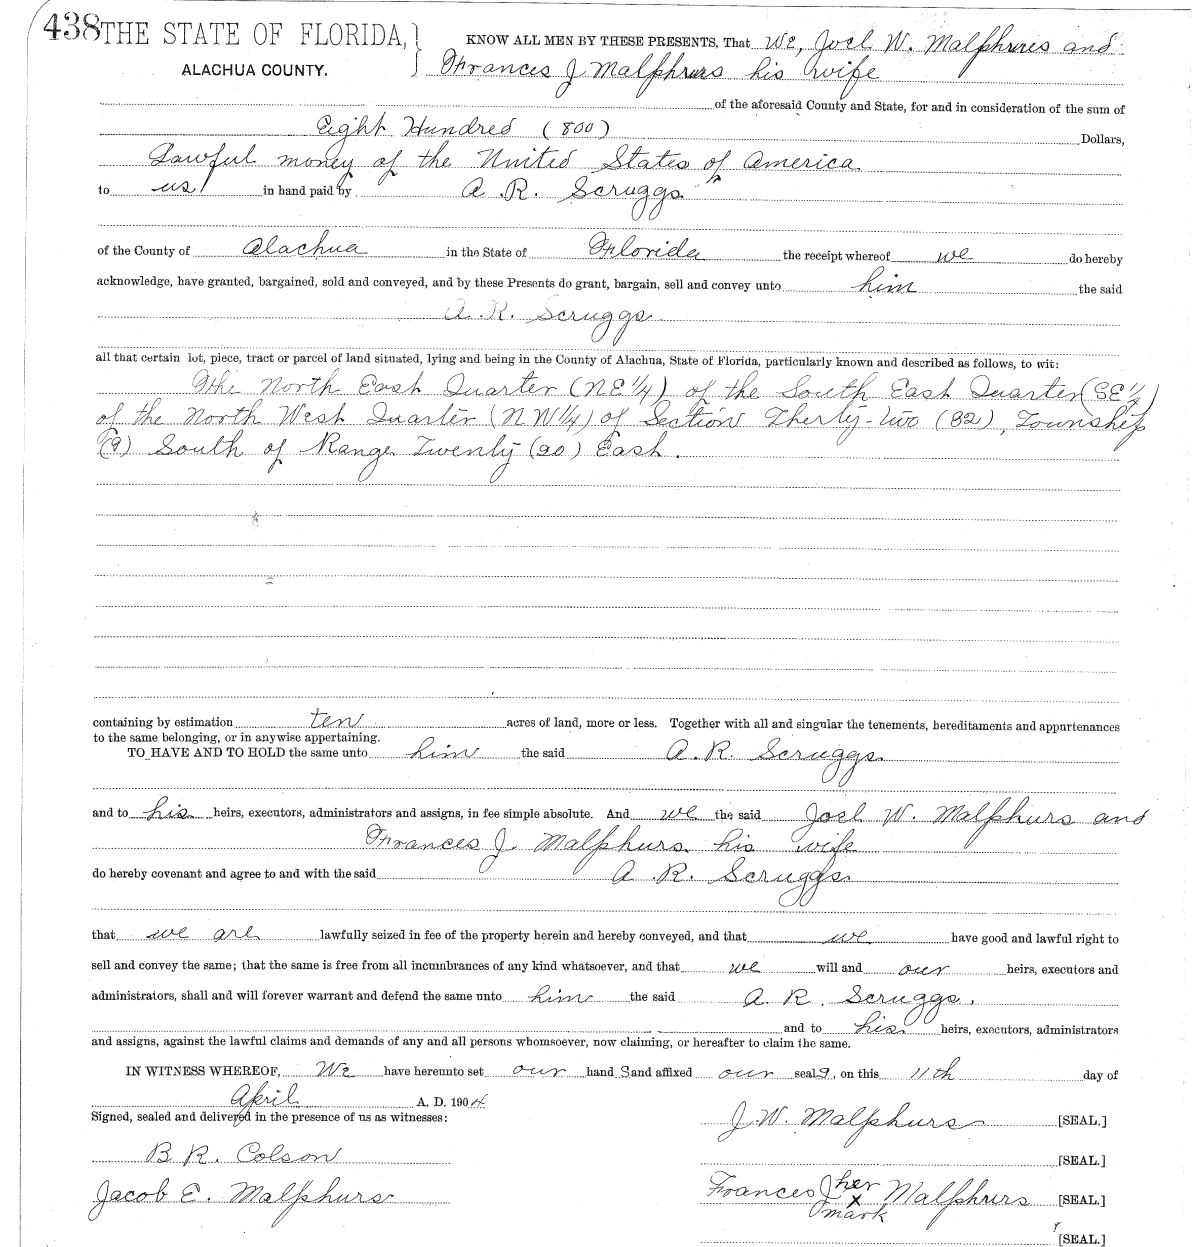 438 THE STATE OF FLORIDA, } KNOW ALL MEN BY THESE PRESENTS, That We, Joel W. Malphures and
ALACHUA COUNTY. Frances J Malphurs his wife
of the aforesaid County and State, for and in consideration of the sum of
Eight Hundred (800) Dollars,
Lawful money of the United States of America
to us in hand paid by A. R. Scruggs
of the County of Alachua in the State of Florida the receipt whereof we do hereby
acknowledge, have granted, bargained, sold and conveyed, and by these Presents do grant, bargain, sell and convey unto him the said
A. R. Scruggs
all that certain lot, piece, tract or parcel of land situated, lying and being in the County of Alachua, State of Florida, particularly known and described as follows, to wit:
The North East Quarter (NE 1/4) of the South East Quarter (SE 1/4)
of the North West Quarter (NW 1/4) of Section Therty-two (32), Township
(9) South of Range Twenty (20) East.
containing by estimation ten acres of land, more or less. Together with all and singular the tenements, hereditaments and appurtenances
to the same belonging, or in anywise appertaining.
TO HAVE AND TO HOLD the same unto him the said A. R. Scruggs
and to his heirs, executors, administrators and assigns, in fee simple absolute. And we the said Joel W. Malphurs and
Frances J. Malphurs his wife
do hereby covenant and agree to and with the said A. R. Scruggs
that we are lawfully seized in fee of the property herein and hereby conveyed, and that we have good and lawful right to
sell and convey the same; that the same is free from all incumbrances of any kind whatsoever, and that we will and our heirs, executors and
administrators, shall and will forever warrant and defend the same unto him the said A. R. Scruggs.
and to his heirs, executors, administrators
and assigns, against the lawful claims and demands of any and all persons whomsoever, now claiming, or hereafter to claim the same.
IN WITNESS WHEREOF, We have hereunto set our hand S and affixed our seal S, on this 11th day of
April A. D. 1904
Signed, sealed and delivered in the presence of us as witnesses:
J. W. Malphurs [SEAL.]
B R. Colson [SEAL.]
Jacob E. Malphurs Frances J her x mark Malphurs [SEAL.]
[SEAL.]